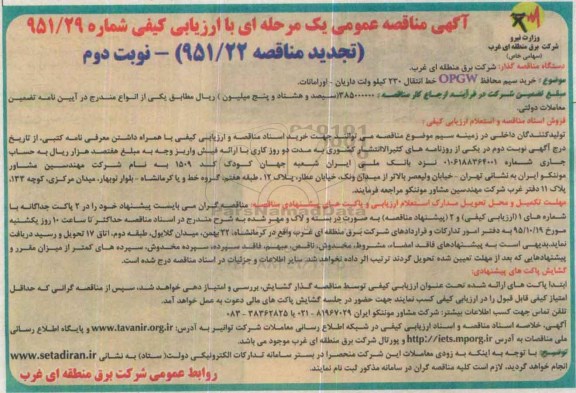 آگهی مناقصه عمومی یک مرحله ای با ارزیابی کیفی شماره ۹۵۱/۲۹
(تجدید مناقصه ۹۵۱/۲۲) – نوبت دوم
وزارت نیرو
شرکت برق منطقه ای غرب
(سهامی خاص)
دستگاه مناقصه گذار: شرکت برق منطقه ای غرب.
موضوع : خرید سیم محافظ OPGW خط انتقال ۲۳۰ کیلو ولت داریان - اورامانات.
مبلغ تضمین شرکت در فرآیند ارجاع کار مناقصه : ۳۸۵۰۰۰۰۰۰(سیصد و هشتاد و پنج میلیون ) ریال مطابق یکی از انواع مندرج در آیین نامه تضمین
معاملات دولتی.
فروش اسناد مناقصه و استعلام ارزیابی کیفی :
تولیدکنندگان داخلی در زمینه سیم موضوع مناقصه می توانند جهت خرید اسناد مناقصه و ارزیابی کیفی با همراه داشتن معرفی نامه کتبی، از تاریخ
درج آگهی نوبت دوم در یکی از روزنامه های کثیرالانتشار کشوری به مدت دو روز کاری با ارائه فیش واریز وجه به مبلغ هفتصد هزار ریال به حساب
جاری شماره ۰۱۰۶۱۸۸۳۶۴۰۰۱ نزد بانک ملی ایران شعبه جهان کودک کد ۱۵۰۹ به نام شرکت مهندسین مشاور
موننکو ایران به نشانی تهران - خیابان ولیعصر بالاتر از میدان ونک، خیابان عطار، پلاک ۱۲ ، طبقه هفتم، گروه خط و یا کرمانشاه - بلوار نوبهار، میدان مرکزی، کوچه ۱۳۳،
پلاک ۱۱ دفتر غرب شرکت مهندسین مشاور موننکو مراجعه فرمایند.
مهلت تکمیل و محل تحویل مدارک استعلام ارزیابی و پاکت های پیشنهادی مناقصه: مناقصه گران می بایست پیشنهاد خود را در ۲ پاکت جداگانه با
شماره های ۱ (ارزیابی کیفی) و ۲ (پیشنهاد مناقصه) به صورت در بسته و لاک و مهر شده به شرح مندرج در اسناد مناقصه حداکثر تا ساعت ۱۰ روز یکشنبه
مورخ ۹۵/۱۰/۱۹ به دفتر امور تدارکات و قراردادهای شرکت برق منطقه ای غرب واقع در کرمانشاه، ۲۲ بهمن، میدان گلایول، طبقه دوم، اتاق ۱۷ تحویل و رسید دریافت
نماید.بدیهی است به پیشنهادهای فاقد امضاء، مشروط، مخدوش، ناقص، مبهم، فاقد سپرده، سپرده مخدوش، سپرده های کمتر از میزان مقرر و
پیشنهادهایی که بعد از مهلت تعیین شده تحویل گردند ترتیب اثر داده نخواهد شد. سایر اطلاعات و جزئیات در اسناد مناقصه درج شده است.
گشایش پاکت های پیشنهادی:
ابتدا پاکت های ارائه شده تحت عنوان ارزیابی کیفی توسط مناقصه گذار گشایش، بررسی و امتیاز دهی خواهد شد، سپس از مناقصه گرانی که حداقل
امتیاز کیفی قابل قبول را در ارزیابی کیفی کسب نمایند جهت حضور در جلسه گشایش پاکت های مالی دعوت به عمل خواهد آمد.
تلفن تماس جهت کسب اطلاعات بیشتر: شرکت مشاور موننکو ایران ۸۱۹۶۷۰۲۹ - ۰۲۱ یا ۳۸۳۶۲۸۲۵ - ۰۸۳
آگهی، خلاصه اسناد مناقصه و اسناد ارزیابی کیفی در شبکه اطلاع رسانی معاملات شرکت توانیر به آدرس: www.tavanir.org.ir و پایگاه اطلاع رسانی
ملی مناقصات به آدرس http://iets.mporg.ir و پورتال شرکت برق منطقه ای غرب موجود می باشد.
توضیح: با توجه به اینکه به زودی معاملات این شرکت منحصرا در بستر سامانه تدارکات الکترونیکی دولت( ستاد) به نشانی www.setadiran.ir
انجام خواهد گردید، لازم است کلیه مناقصه گران در سامانه مذکور ثبت نام نمایند.
روابط عمومی شرکت برق منطقه ای غرب